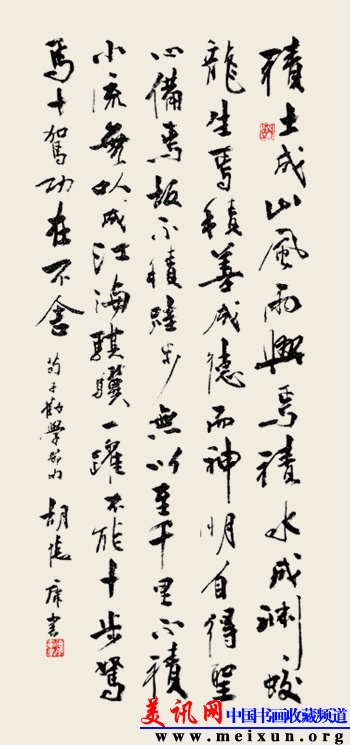 積土成山風雨興焉積水成淵蛟
龍生焉積善成德而神明自得聖
心備焉故不積跬步無以至千里不積
小流無以成江海騏驥一躍不能十步駑
馬十駕功在不舍 荀子勸學 胡 書
美讯网 中国书画收藏频道
www.meixun.org